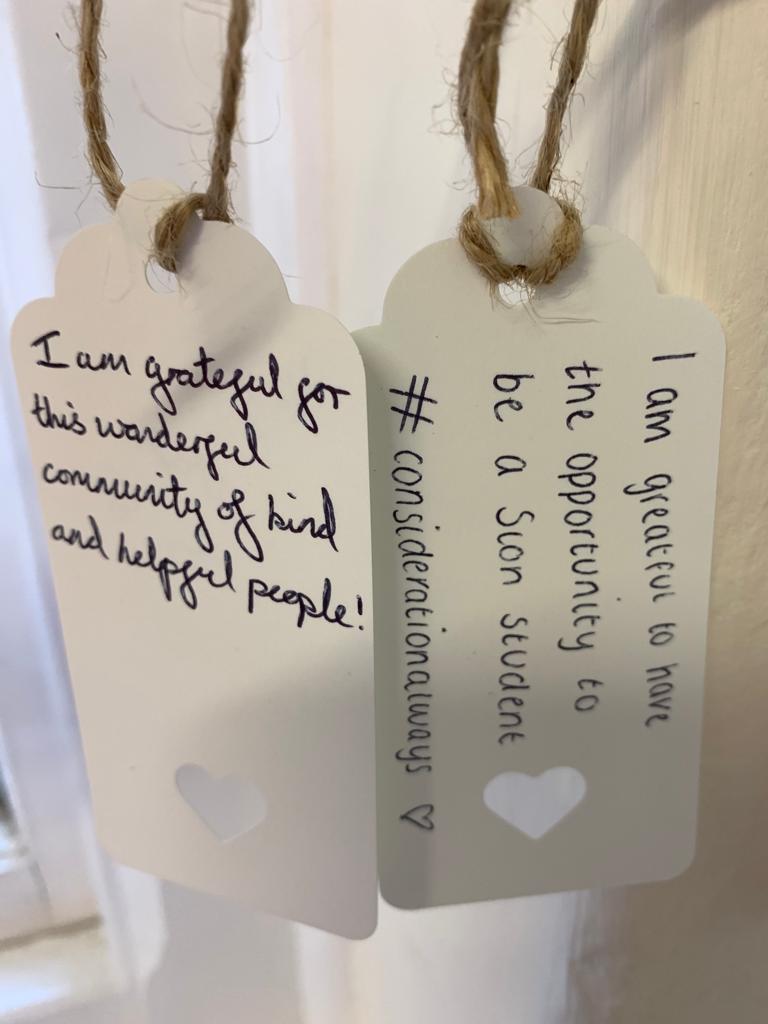 I am grateful for
this wonderful
community of kind
and helpful people!
I am greatful to have
the opportunity to
be a Sion student
# considerationalways ♡